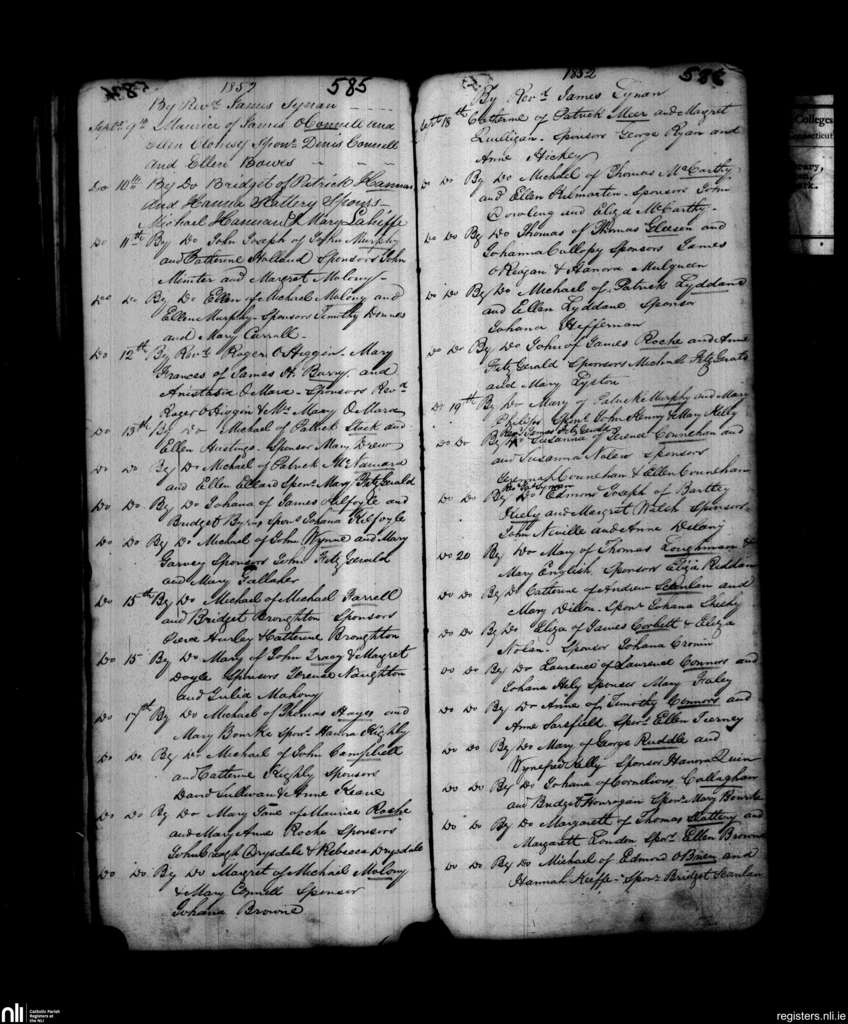 1852 585
By Revd. James Tynan
Sept. 9th Maurice of James O Connell and
Ellen Clohesy Sponrs Denis Connell
and Ellen Bowes
Do 10th By Do Bridget of Patrick Hannan
and Hanna Slattery Spons
Michael Hannan & Mary Lahiffe
Do 11th By Do John Joseph of John Murphy
and Catherine Holland Sponsors John
Minster and Margret Molony
Do Do By Do Ellen of Micheal Molony and
Ellen Murphy Sponsors Timothy Downes
and Mary Carroll
Do 12th By Revd. Roger O Higgin Mary
Frances of James H Barry and
Anistasia O Mara Sponsors Revd.
Roger O Higgin & Mrs Mary O Mara
Do 13th By Do Micheal of Patrick Slack and
Ellen Hastings Sponsor Mary Drew
Do Do By Do Micheal of Patrick McNamara
and Ellen Ellard Sponr Mary FitzGerald
Do Do By Do Johana of James Kilfoyle and
Bridget Byrns Sponr Johana Kilfoyle
Do Do By Do Micheal of John Wynne and Mary
Garvey Sponsors John FitzGerald
and Mary Gallaher
Do 15th By Do Micheal of Michael Farrell
and Bridget Broughton Sponsors
Hurley & Catherine Broughton
Do 15 By Do Mary of John Tracy & Margret
Doyle Sponsors Terence Naughton
and Julia Mahony
Do 17th By Do Micheal of Thomas Hayes and
Mary Bourke Sponr Hanna Kighly
Do Do By Do Micheal of John Campbell
and Catherine Kighly Sponsors
David Sullivan & Anne Keane
Do Do By Do Mary Jane of Maurice Roche
and Mary Anne Roche Sponsors
John Drysdale & Rebecca Drysdale
Do Do By Do Margret of Michail Molony
& Mary Connell Sponsor
Johana Browne
1852 586
By Revd. James Tynan
Sept 18th Catherine of Patrick Meer and Margret
Quilligan Sponsors George Ryan and
Anne Hickey
Do Do By Do Micheal of Thomas McCarthy
and Ellen Kilmartin Sponsors John
Dowling and Eliza McCarthy
Do Do By Do Thomas of Thomas Gleeson and
Johanna Callopy Sponsors James
O Regan & Hanora Mulqueen
Do Do By Do Micheal of Patrick Lyddane
and Ellen Lyddane Sponsor
Johana Heffernan
Do Do By Do John of James Roche and Anne
FitzGerald Sponsors Micheal FitzGerald
and Mary Lyston
Do 19th By Do Mary of Patrick Murphy and Mary
Phillips Sponrs John Henry & Mary Kelly
Revd James FitzGerald
Do Do By Susanna of Terence Counehan and
and Susanna Nolan sponsors
Counehan & Ellen Counehan
Revd Jas Tynan
Do Do By Do Edmond Joseph of Bartley
Hiely and Margret Walsh Sponsors
John Neville and Anne Delany
Do 20 By Do Mary of Thomas Loughman &
Mary English Sponsors Eliza Riddan
Do Do By Do Catherine of Andrew Scanlan and
Mary Dillon Sponr Johana Sheehy
Do Do By Do Eliza of James Corbett & Eliza
Nolan Sponsor Johana Cronin
Do Do By Do Laurence of Laurence Connors and
Johana Hely Sponsor Mary Healey
Do Do By Do Anne of Timothy Connors and
Anne Sarsfield Sponr Ellen Tierney
Do Do By Do Mary of George Ruddle and
Wynefred Kelly Sponsor Hanora Quin
Do Do By Do Johana of Cornelious Callaghan
and Bridget Hourogan Sponr Mary Bourke
Do Do By Do Margarett of Thomas Slattery and
Margarett London Sponr Ellen Browne
Do Do By Do Michael of Edmond O Brien and
Hannah Keeffe Sponr Bridget Scanlan
Colleges
Connecticut
nli
Catholic Parish
Registers at
the NLI
registers.nli.ie